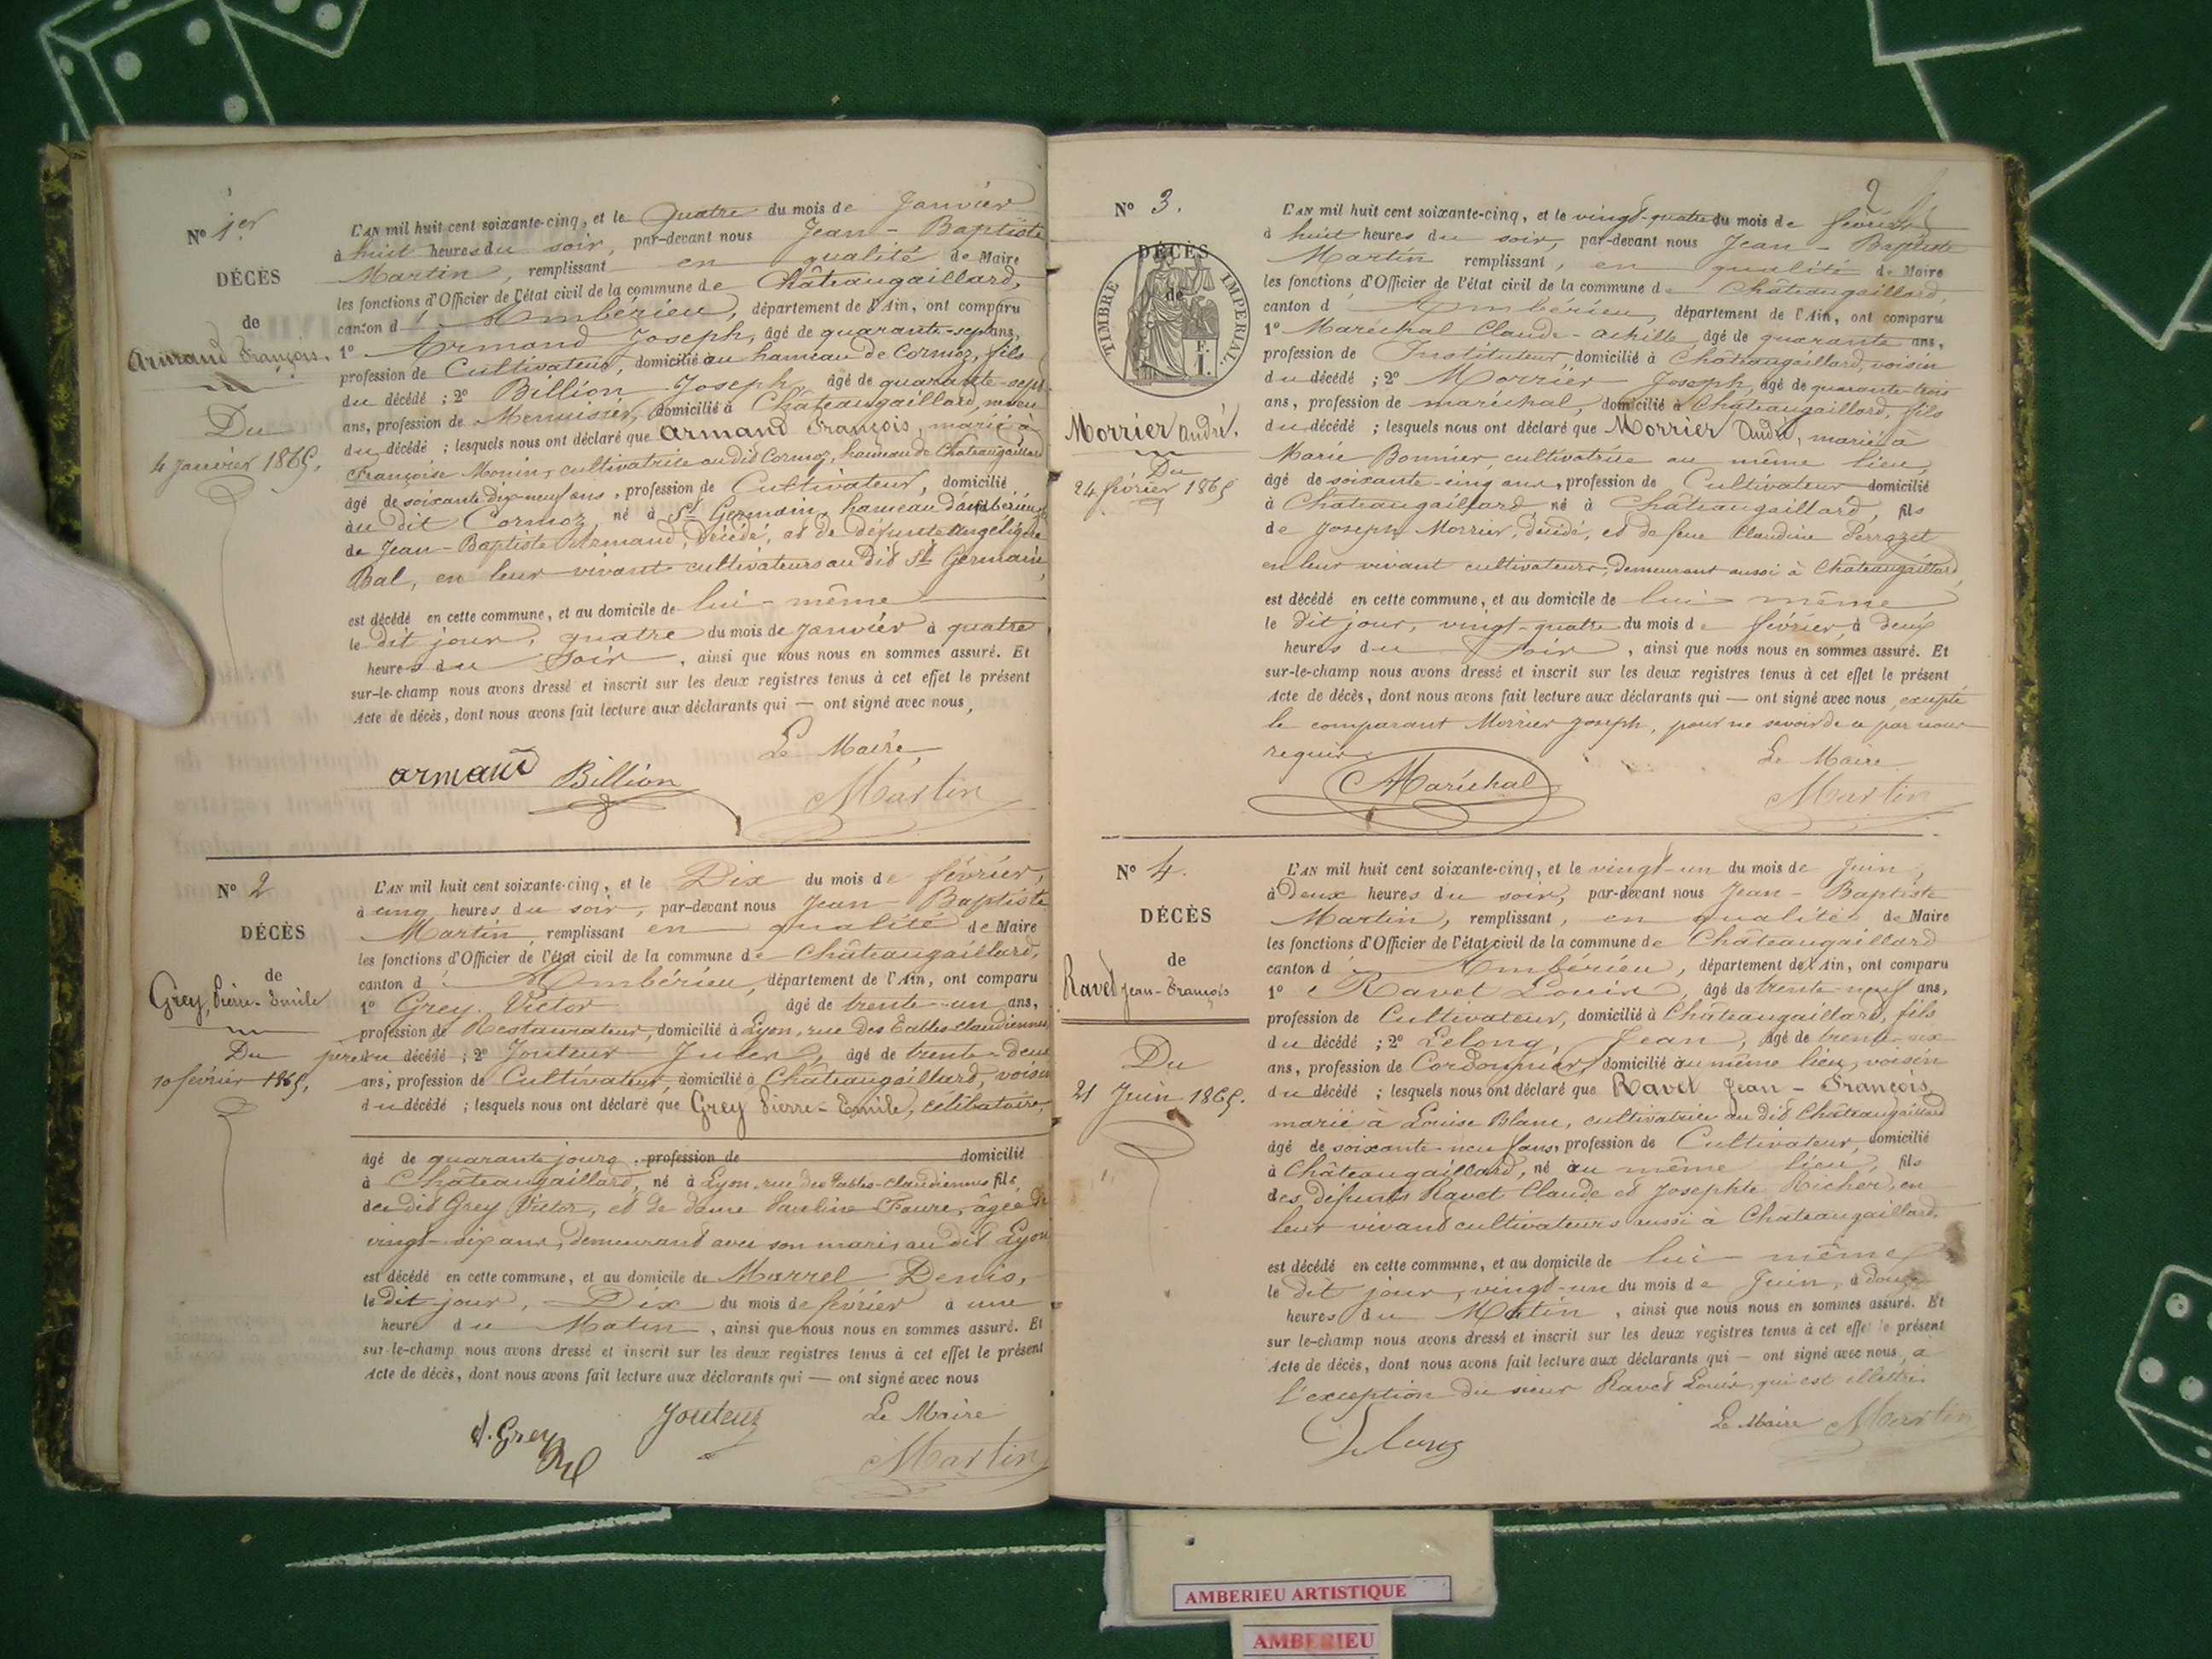 N° 1er
DÉCÈS
de
Armand François.
Du
4 Janvier 1865.
L'AN mil huit cent soixante-cinq, et le Quatre du mois de Janvier
à huit heures du soir, par-devant nous Jean-Baptiste
Martin, remplissant en qualité de Maire
les fonctions d'Officier de l'état civil de la commune de Châteaugaillard,
canton d'Ambérieu, département de l'Ain, ont comparu
1° Armand Joseph, âgé de quarante-sept ans,
profession de Cultivateur, domicilié au hameau de Cormoz, fils
du décédé ; 2° Billion Joseph, âgé de quarante-sept
ans, profession de Menuisier, domicilié à Châteaugaillard, neveu
du décédé ; lesquels nous ont déclaré que Armand François, marié à
Françoise Monin, cultivatrice au dit Cormoz, hameau de Châteaugaillard
âgé de soixante-dix-neuf ans, profession de Cultivateur, domicilié
au dit Cormoz, né à St Germain, hameau d'Ambérieu, fils
de Jean-Baptiste Armand, décédé, et de défunte Angélique
Bal, en leur vivant cultivateurs au dit St Germain,
est décédé en cette commune, et au domicile de lui-même
le dit jour, quatre du mois de Janvier à quatre
heures du Soir, ainsi que nous nous en sommes assuré. Et
sur-le-champ nous avons dressé et inscrit sur les deux registres tenus à cet effet le présent
Acte de décès, dont nous avons fait lecture aux déclarants qui — ont signé avec nous,
Le Maire,
armand Billion Martin
N° 2
DÉCÈS
de
Grey, Pierre-Emile
Du
10 février 1865.
L'AN mil huit cent soixante-cinq, et le Dix du mois de février,
à cinq heures du soir, par-devant nous Jean-Baptiste
Martin, remplissant en qualité de Maire
les fonctions d'Officier de l'état civil de la commune de Châteaugaillard,
canton d'Ambérieu, département de l'Ain, ont comparu
1° Grey Victor âgé de trente-un ans,
profession de Restaurateur, domicilié à Lyon, rue des Tables Claudiennes,
père du décédé ; 2° Jouteur Julen, âgé de trente-deux
ans, profession de Cultivateur, domicilié à Châteaugaillard, voisin
du décédé ; lesquels nous ont déclaré que Grey Pierre-Emile, célibataire,
âgé de quarante jours, profession de domicilié
à Châteaugaillard, né à Lyon, rue des Tables-Claudiennes fils
du dit Grey Victor, et de dame Pauline Faure, âgée de
vingt-six ans, demeurant avec son mari, au dit Lyon
est décédé en cette commune, et au domicile de Marrel Denis,
le dit jour, Dix du mois de février à une
heure du Matin, ainsi que nous nous en sommes assuré. Et
sur-le-champ nous avons dressé et inscrit sur les deux registres tenus à cet effet le présent
Acte de décès, dont nous avons fait lecture aux déclarants qui — ont signé avec nous
Le Maire
Grey Jouteur Martin
2
N° 3.
DÉCÈS
de
TIMBRE IMPERIAL.
F.
1.
Morrier André.
Du
24 février 1865
L'AN mil huit cent soixante-cinq, et le vingt-quatre du mois de février
à huit heures du soir, par-devant nous Jean-Baptiste
Martin remplissant, en qualité de Maire
les fonctions d'Officier de l'état civil de la commune de Châteaugaillard,
canton d'Ambérieu, département de l'Ain, ont comparu
1° Maréchal Claude-Achille, âgé de quarante ans,
profession de Instituteur, domicilié à Châteaugaillard, voisin
du décédé ; 2° Morrier Joseph, âgé de quarante-trois
ans, profession de maréchal, domicilié à Châteaugaillard, fils
du décédé ; lesquels nous ont déclaré que Morrier André, marié à
Marie Bonnier, cultivatrice au même lieu,
âgé de soixante-cinq ans, profession de Cultivateur domicilié
à Châteaugaillard, né à Châteaugaillard, fils
de Joseph Morrier, décédé, et de feue Claudine Perrozet
en leur vivant cultivateurs, demeurant aussi à Châteaugaillard,
est décédé en cette commune, et au domicile de lui même
le dit jour, vingt-quatre du mois de février, à deux
heures du soir, ainsi que nous nous en sommes assuré. Et
sur-le-champ nous avons dressé et inscrit sur les deux registres tenus à cet effet le présent
Acte de décès, dont nous avons fait lecture aux déclarants qui — ont signé avec nous, excepté
le comparant Morrier Joseph, pour ne savoir de ce par nous
requis.
Le Maire
Maréchal Martin
N° 4.
DÉCÈS
de
Ravet Jean-François
Du
21 Juin 1865.
L'AN mil huit cent soixante-cinq, et le vingt-un du mois de Juin,
à Deux heures du soir, par-devant nous Jean-Baptiste
Martin, remplissant, en qualité de Maire
les fonctions d'Officier de l'état civil de la commune de Châteaugaillard
canton d'Ambérieu, département de l'Ain, ont comparu
1° Ravet Louis, âgé de trente-neuf ans,
profession de Cultivateur, domicilié à Châteaugaillard, fils
du décédé ; 2° Lelong, Jean, âgé de trente-six
ans, profession de Cordonnier, domicilié au même lieu, voisin
du décédé ; lesquels nous ont déclaré que Ravet Jean-François,
marié à Louise Blanc, cultivatrice au dit Châteaugaillard
âgé de soixante-neuf ans, profession de Cultivateur, domicilié
à Châteaugaillard, né au même lieu, fils
des défunts Ravet Claude et Josephte Richer, en
leur vivant cultivateurs aussi à Châteaugaillard.
est décédé en cette commune, et au domicile de lui-même
le dit jour, vingt-un du mois de Juin, à douze
heures du Matin, ainsi que nous nous en sommes assuré. Et
sur le-champ nous avons dressé et inscrit sur les deux registres tenus à cet effet le présent
Acte de décès, dont nous avons fait lecture aux déclarants qui — ont signé avec nous, à
l'exception du sieur Ravet Louis, qui est illettré.
Le Maire Martin
Lelong
AMBERIEU ARTISTIQUE
AMBERIEU